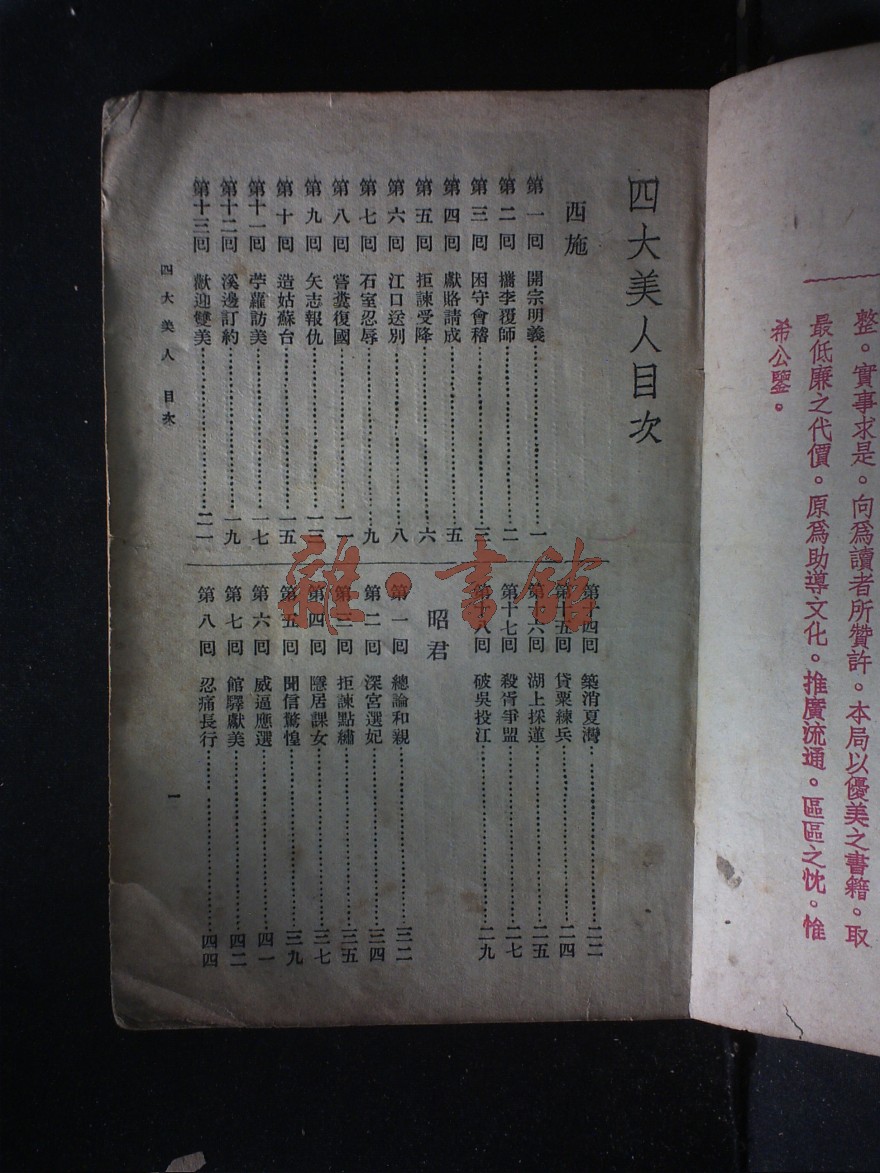 整。實事求是。向爲讀者所贊許。本局以優美之書籍。取
最低廉之代價。原爲助導文化。推廣流通。區區之忱。惟
希公鑒。
四大美人目次
西施
第一回 開宗明義……一
第二回 檇李覆師……二
第三回 困守會稽……三
第四回 獻賂請成……五
第五回 拒諫受降……六
第六回 江口送別……八
第七回 石室忍辱……九
第八回 嘗糞復國……一一
第九回 矢志報仇……一三
第十回 造姑蘇台……一五
第十一回 苧蘿訪美……一七
第十二回 溪邊訂約……一九
第十三回 歡迎雙美……二一
第十四回 築消夏灣……二二
第十五回 貸粟練兵……二四
第十六回 湖上採蓮……二五
第十七回 殺胥爭盟……二七
第十八回 破吳投江……二九
昭君
第一回 總論和親……三二
第二回 深宮選妃……三四
第三回 拒諫點繡……三五
第四回 隱居課女……三七
第五回 聞信驚惶……三九
第六回 威逼應選……四一
第七回 館驛獻美……四二
第八回 忍痛長行……四四
四大美人 目次
一
雜·書館